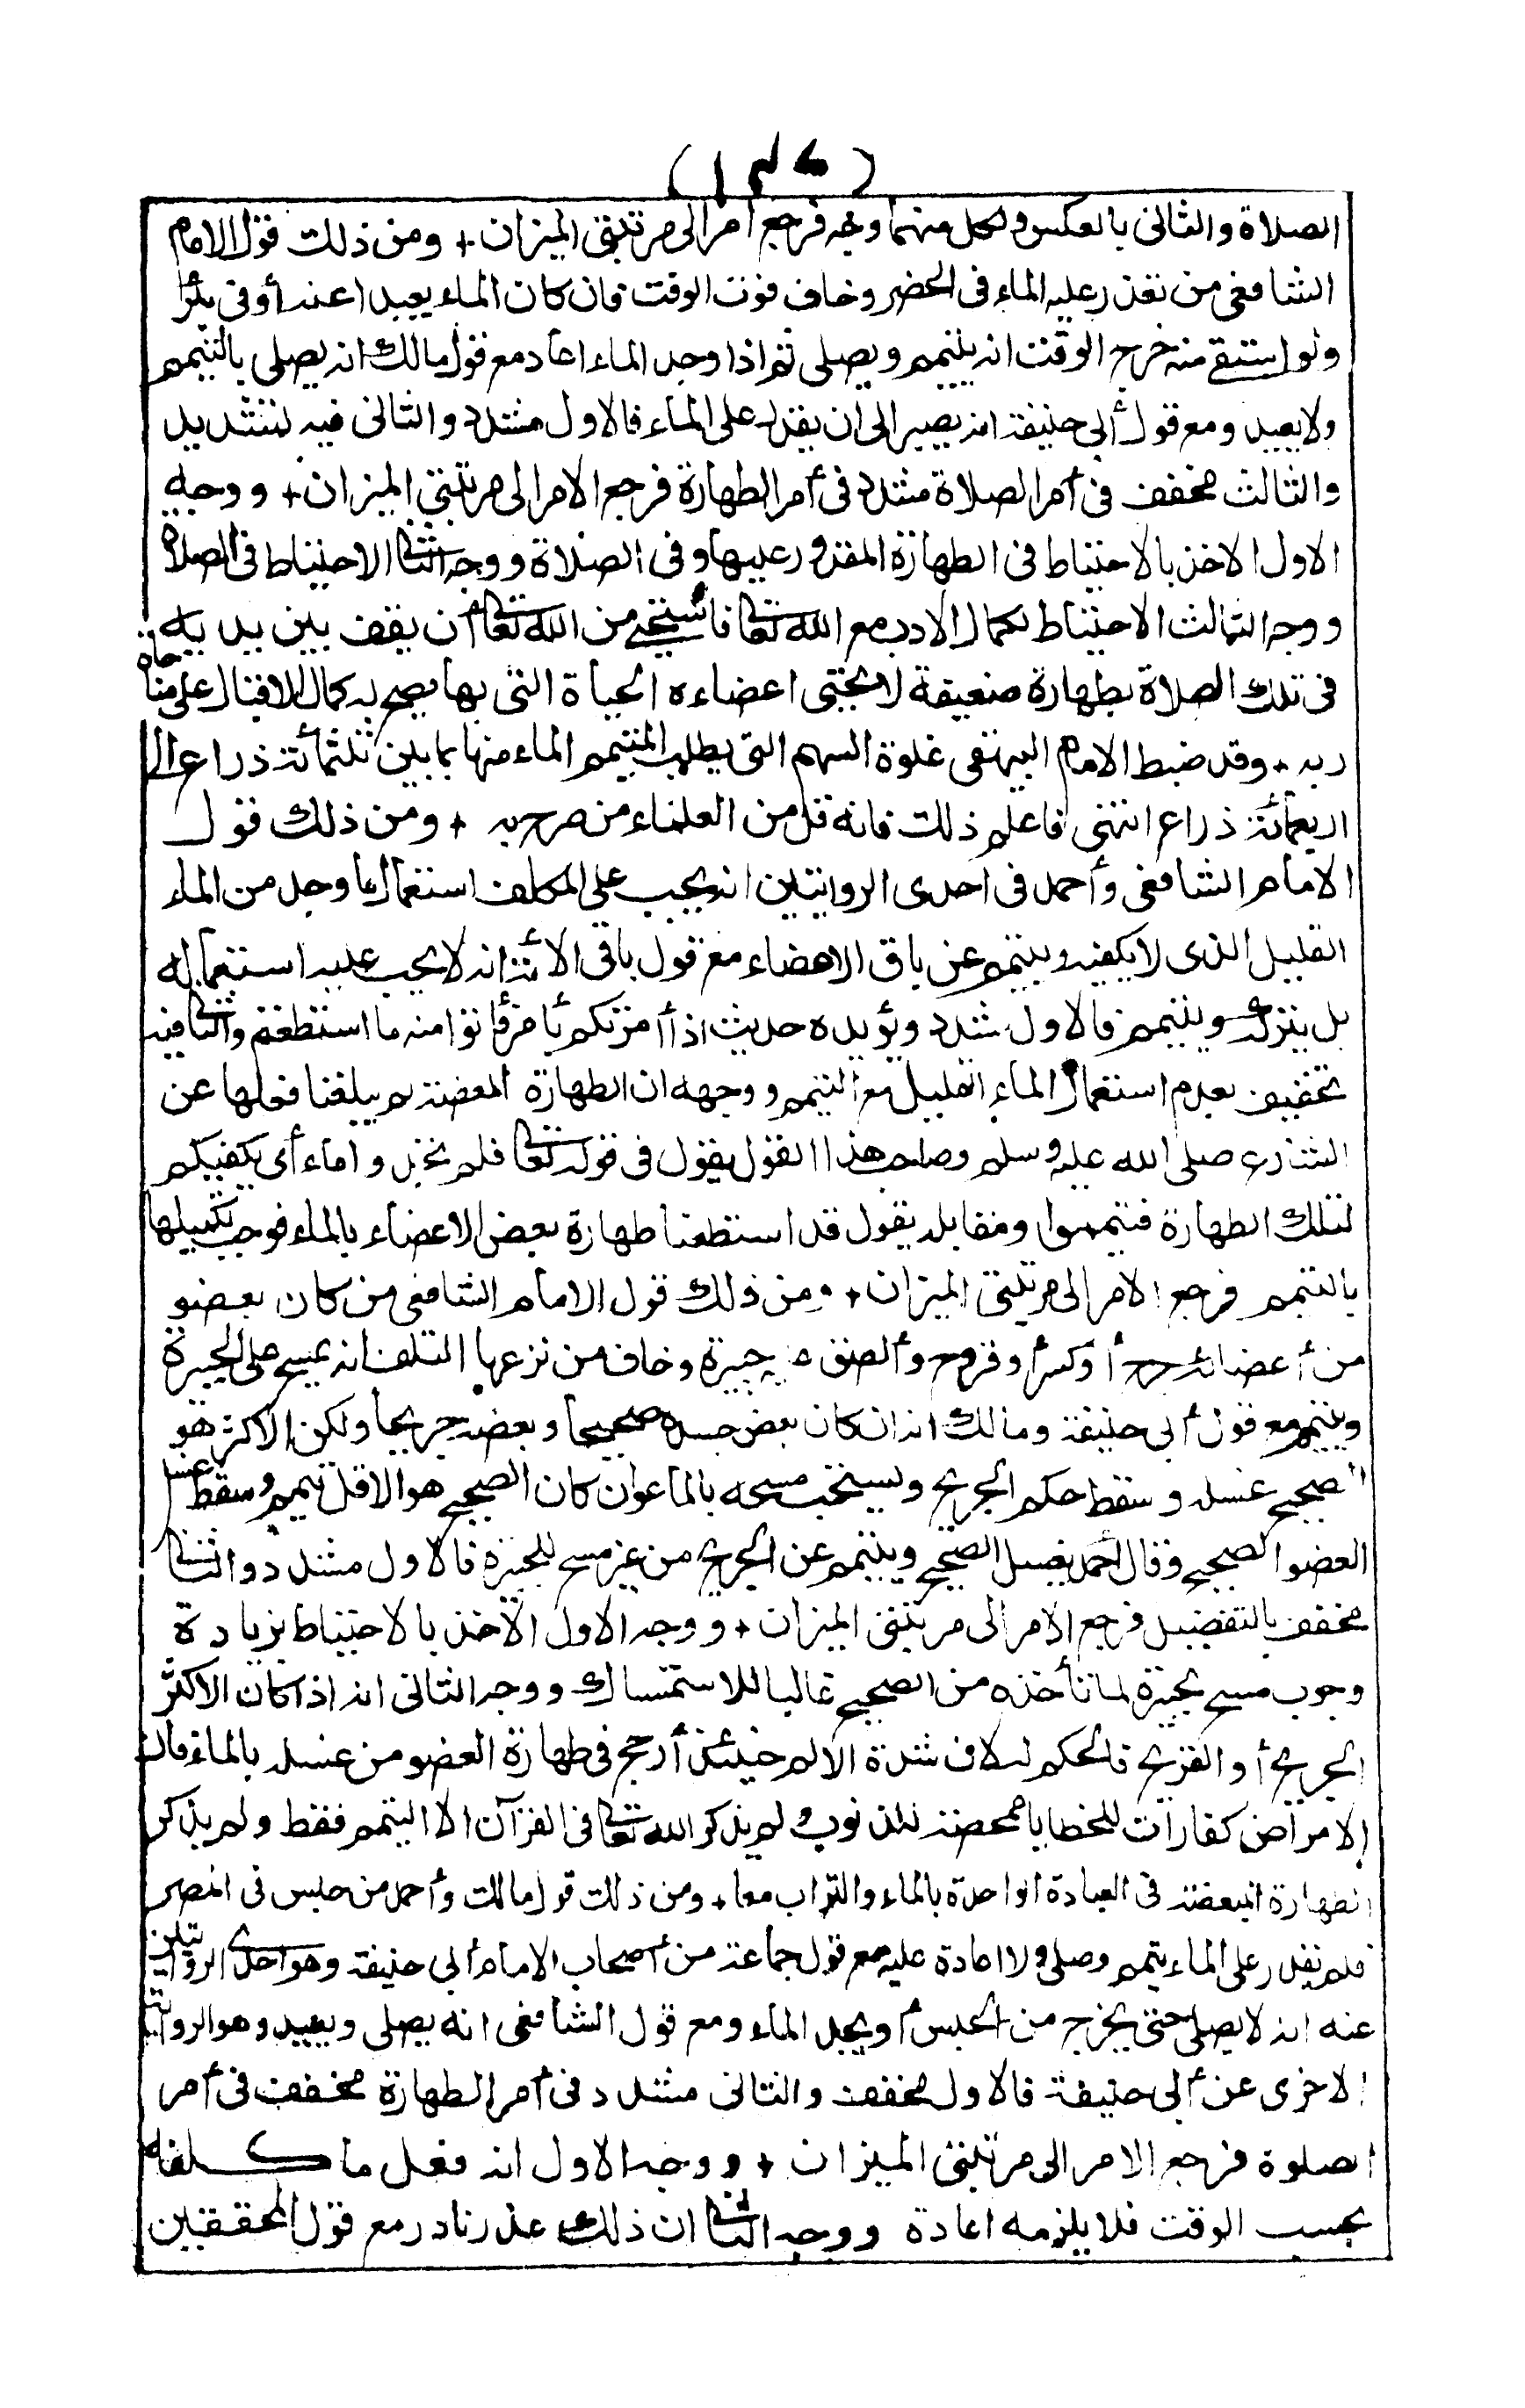 الصلاة والثانى بالعكس ولكل منهما وجه فرجع امر الى مرتبتى الميزان + ومن ذلك قول الامام
الشافعى من تعذر عليه الماء فى الحضر وخاف فوت الوقت فان كان الماء بعيدا عنه أو فى بئر
ولو استقى منه خرج الوقت انه يتيمم ويصلى ثم اذا وجد الماء اعاد مع قول مالك انه يصلى بالتيمم
ولا يعيد ومع قول أبى حنيفة انه يصبر الى ان يقدر على الماء فالاول مشدد والثانى فيه تشديد
والثالث مخفف فى أمر الصلاة مشدد فى أمر الطهارة فرجع الامر الى مرتبتى الميزان + ووجه
الاول الاخذ بالاحتياط فى الطهارة المقدور عليها وفى الصلاة ووجه الثانى الاحتياط فى الصلاة
ووجه الثالث الاحتياط لكمال الادب مع الله تعالى فاستحيى من الله تعالى أن يقف بين يديه
فى تلك الصلاة بطهارة ضعيفة لا تحيى اعضاءه الحياة التى بها يصح له كمال الاقبال على مناجاة
ربه + وقد ضبط الامام البيهقى غلوة السهم التى يطلب المتيمم الماء منها بما بين ثلثمائة ذراع الى
اربعمائة ذراع انتهى فاعلم ذلك فانه قل من العلماء من صرح به + ومن ذلك قول
الامام الشافعى وأحمد فى احدى الروايتين انه يجب على المكلف استعمال ما وجد من الماء
القليل الذى لا يكفيه ويتيمم عن باقى الاعضاء مع قول باقى الائمة انه لا يجب عليه استعماله
بل يتركه ويتيمم فالاول شدد ويؤيده حديث اذا أمرتكم بأمر فأتوا منه ما استطعتم والثانى فيه
تخفيف بعدم استعمال الماء القليل مع التيمم ووجهه ان الطهارة المبعضة لم يبلغنا فعلها عن
الشارع صلى الله عليه وسلم وصاحب هذا القول يقول فى قوله تعالى فلم تجدوا ماء أى يكفيكم
لتلك الطهارة فتيمموا ومقابله يقول قد استطعنا طهارة بعض الاعضاء بالماء فوجب تكميلها
بالتيمم فرجع الامر الى مرتبتى الميزان + ومن ذلك قول الامام الشافعى من كان بعضو
من أعضائه جرح أو كسر أو قروح وألصق عليه جبيرة وخاف من نزعها التلف انه يمسح على الجبيرة
ويتيمم مع قول أبى حنيفة ومالك انه ان كان بعض جسده صحيحا وبعضه جريحا ولكن الاكثر هو
الصحيح غسله وسقط حكم الجريح ويستحب مسحه بالماء وان كان الصحيح هو الاقل تيمم وسقط غسل
العضو الصحيح وقال أحمد يغسل الصحيح ويتيمم عن الجريح من غير مسح للجبيرة فالاول مشدد والثانى
مخفف بالتفضيل فرجع الامر الى مرتبتى الميزان + ووجه الاول الاخذ بالاحتياط بزيادة
وجوب مسح الجبيرة لما تأخذه من الصحيح غالبا للاستمساك ووجه الثانى انه اذا كان الاكثر
الجريح أو القريح فالحكم له لان شدة الالم حينئذ أرجح فى طهارة العضو من غسله بالماء فان
الامراض كفارات للخطايا ممحصة للذنوب ولم يذكر الله تعالى فى القرآن الا التيمم فقط ولم يذكر
الطهارة المبعضة فى العبادة الواحدة بالماء والتراب معا + ومن ذلك قول مالك وأحمد من حبس فى المصر
فلم يقدر على الماء يتيمم وصلى ولا اعادة عليه مع قول جماعة من أصحاب الامام أبى حنيفة وهو احدى الروايتين
عنه انه لا يصلى حتى يخرج من الحبس أو يجد الماء ومع قول الشافعى انه يصلى ويعيد وهو الرواية
الاخرى عن أبى حنيفة فالاول مخفف والثانى مشدد فى أمر الطهارة مخفف فى أمر
الصلوة فرجع الامر الى مرتبتى الميزان + ووجه الاول انه فعل ما كلفه
بحسب الوقت فلا يلزمه اعادة ووجه الثانى ان ذلك عذر نادر مع قول المحققين